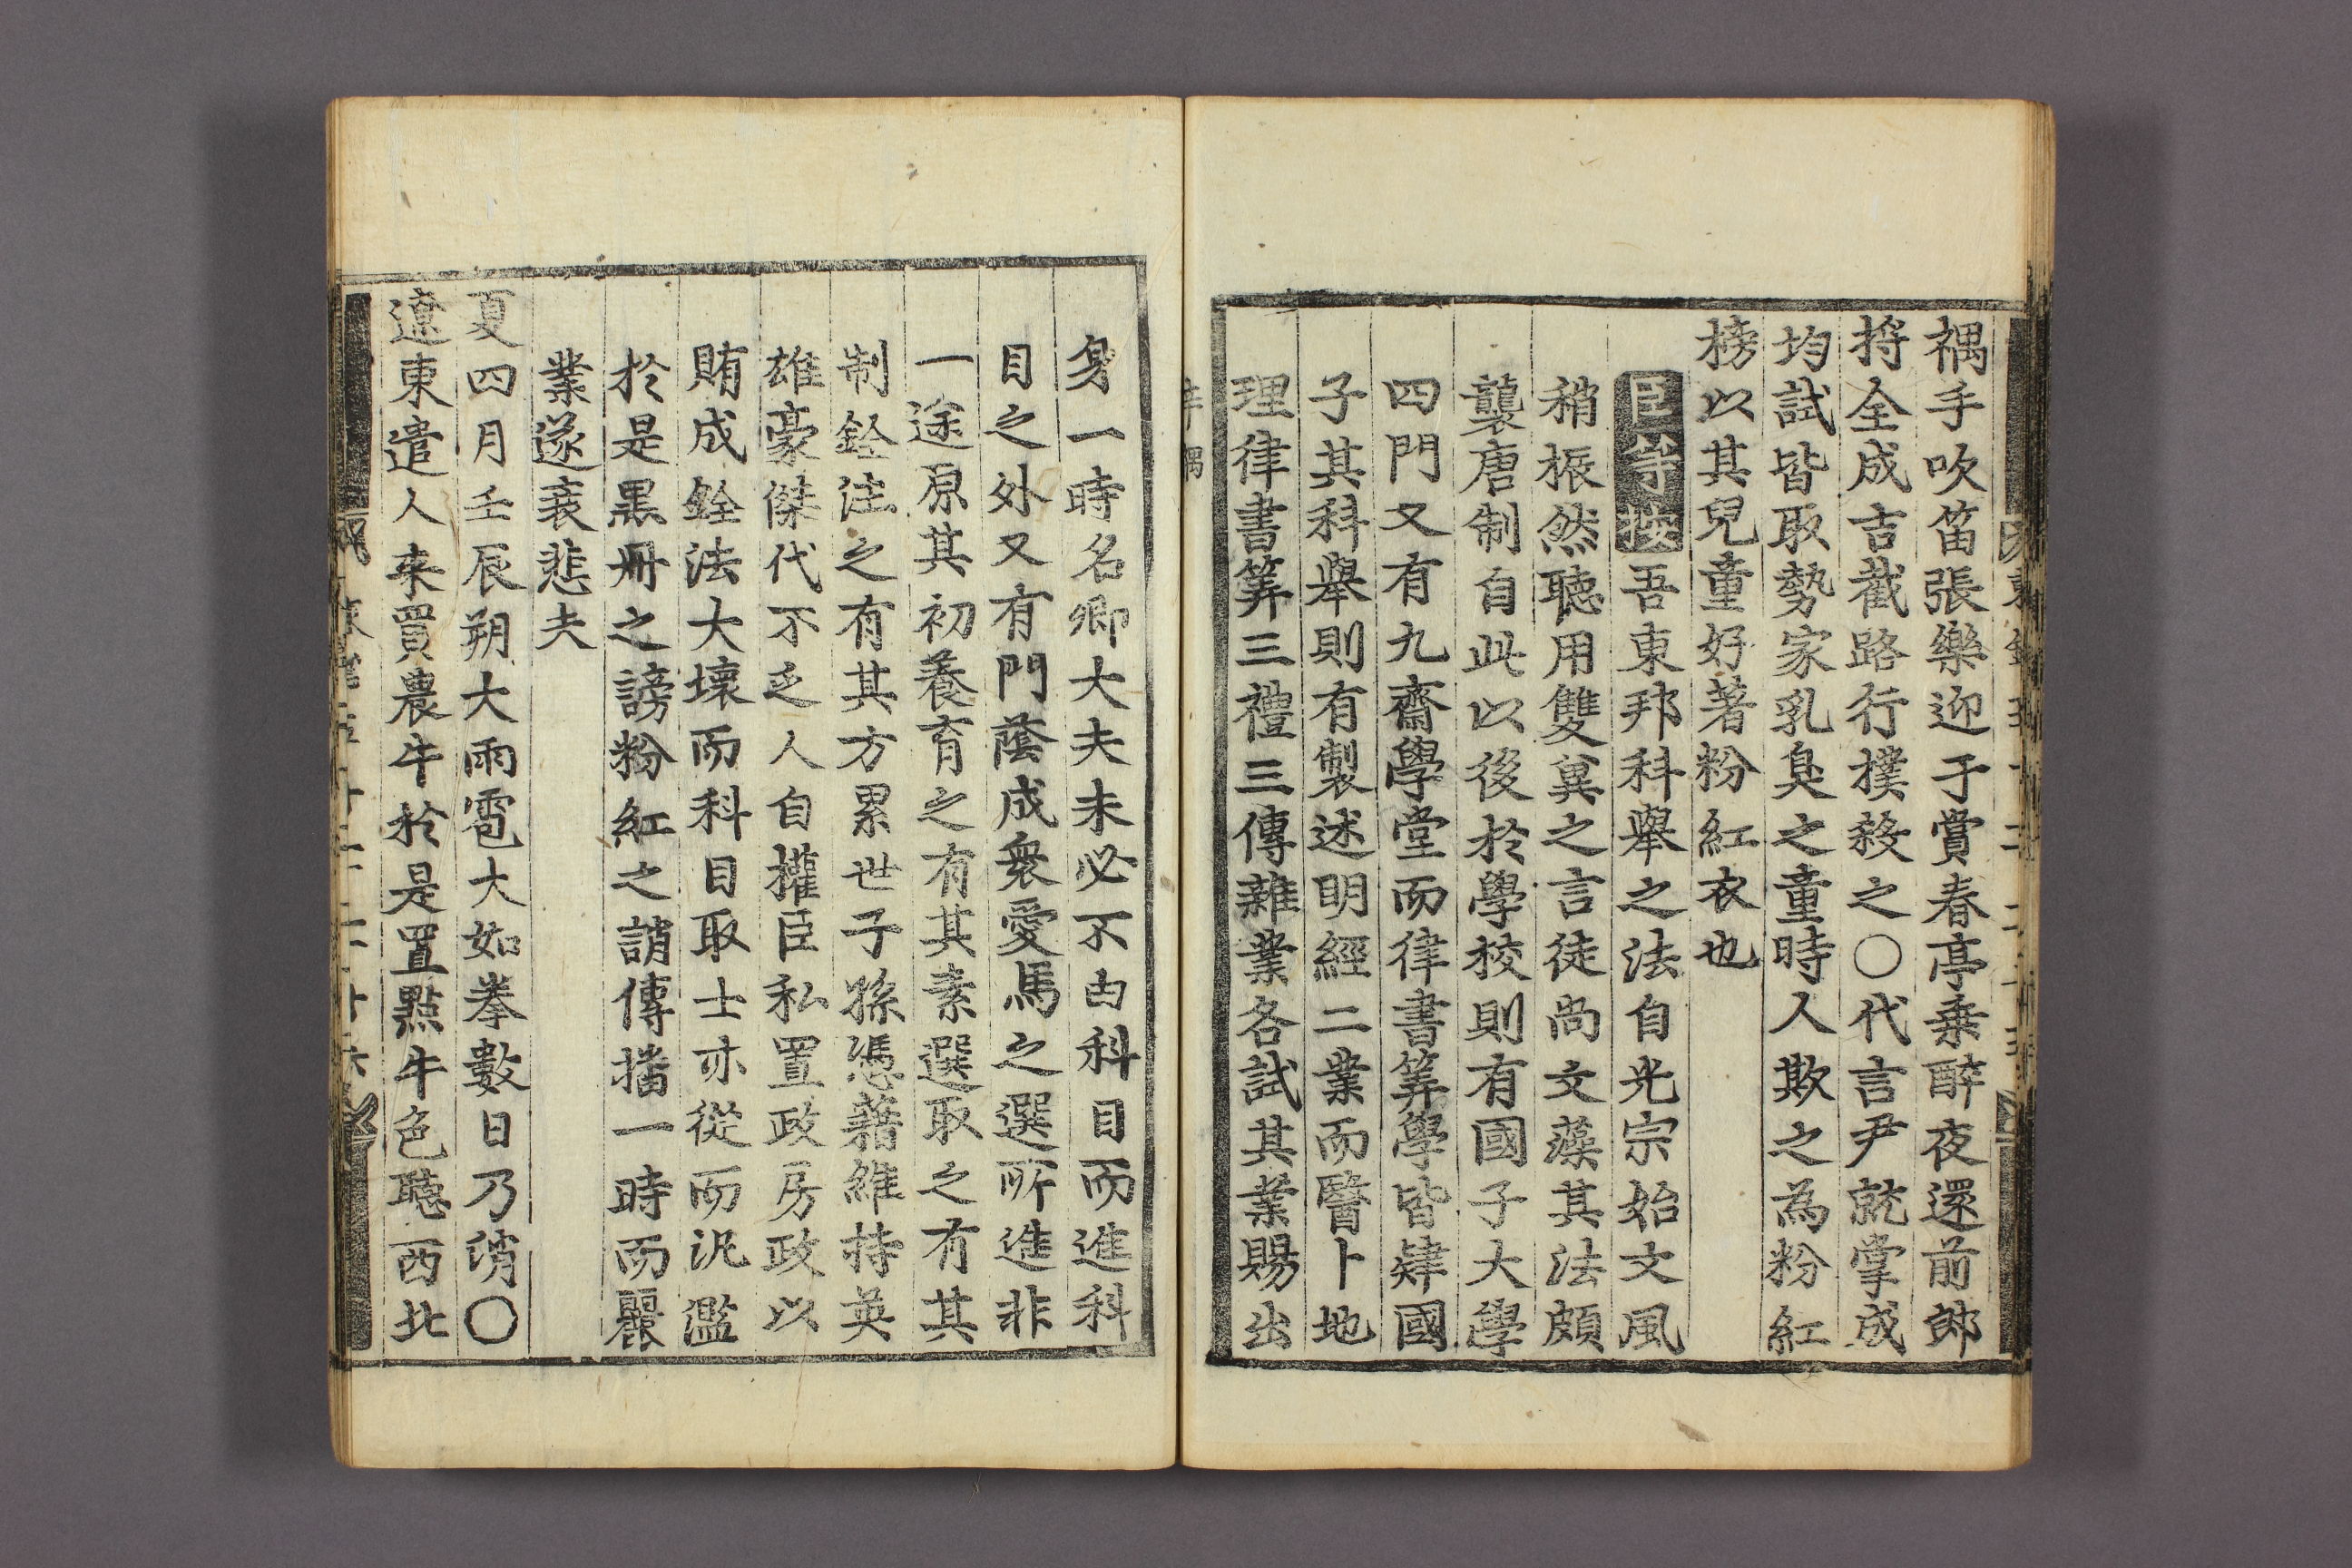 禑手吹笛張樂迎于賞春亭乗醉夜還前郞
将全成吉截路行撲殺之〇代言尹就掌成
均試皆取勢家乳臭之童時人欺之為粉紅
榜以其兒童好著粉紅衣也
臣等按吾東邦科舉之法自光宗始文風
稍振然聽用雙兾之言徒尚文藻其法頗
襲唐制自此以後於學校則有國子大學
四門又有九齋學堂而律書筭學皆肄國
子其科舉則有製述明經二業而醫卜地
理律書筭三禮三傳雜業各試其業賜出
辛禑
身一時名卿大夫未必不由科目而進科
目之外又有門蔭成衆愛馬之選所進非
一途原其初養育之有其素選取之有其
制銓注之有其方累世子孫憑藉維持英
雄豪傑代不乏人自權臣私置政房政以
賄成銓法大壞而科目取士亦從而汎濫
於是黒冊之謗粉紅之誚傳播一時而麗
業遂衰悲夫
夏四月壬辰朔大雨雹大如拳數日乃消〇
遼東遣人来買農牛於是置點牛色聽西北